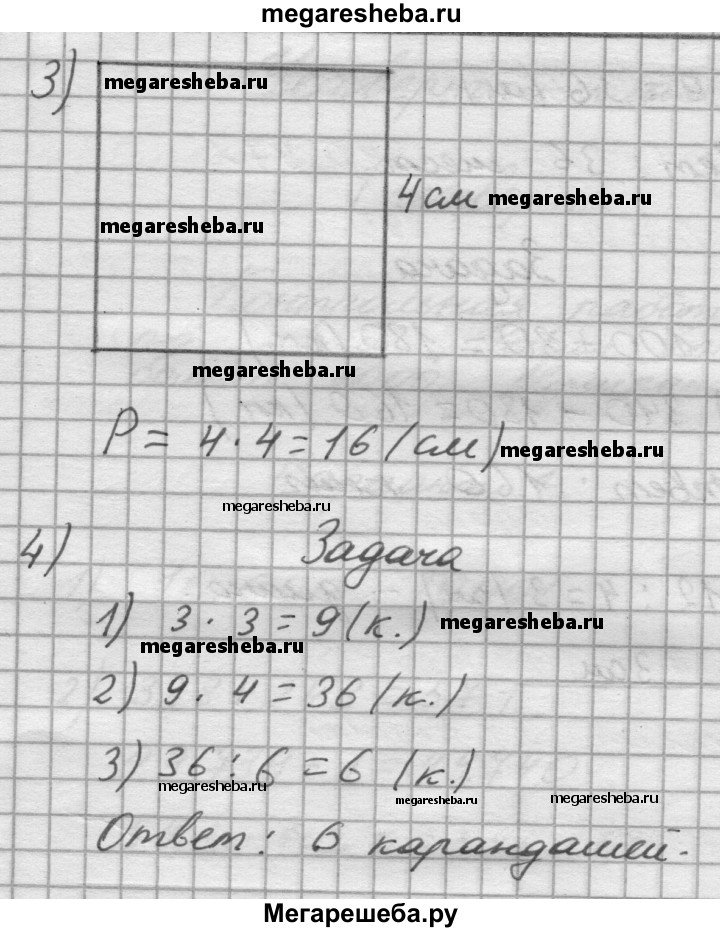 megaresheba.ru
3)
megaresheba.ru
4 см megaresheba.ru
megaresheba.ru
megaresheba.ru
P = 4 · 4 = 16 (см) megaresheba.ru
megaresheba.ru
4) Задача
1) 3 · 3 = 9 (к.) megaresheba.ru
megaresheba.ru
2) 9 · 4 = 36 (к.)
3) 36 : 6 = 6 (к.)
megaresheba.ru megaresheba.ru megaresheba.ru
Ответ: 6 карандашей.
Мегарешеба.ру